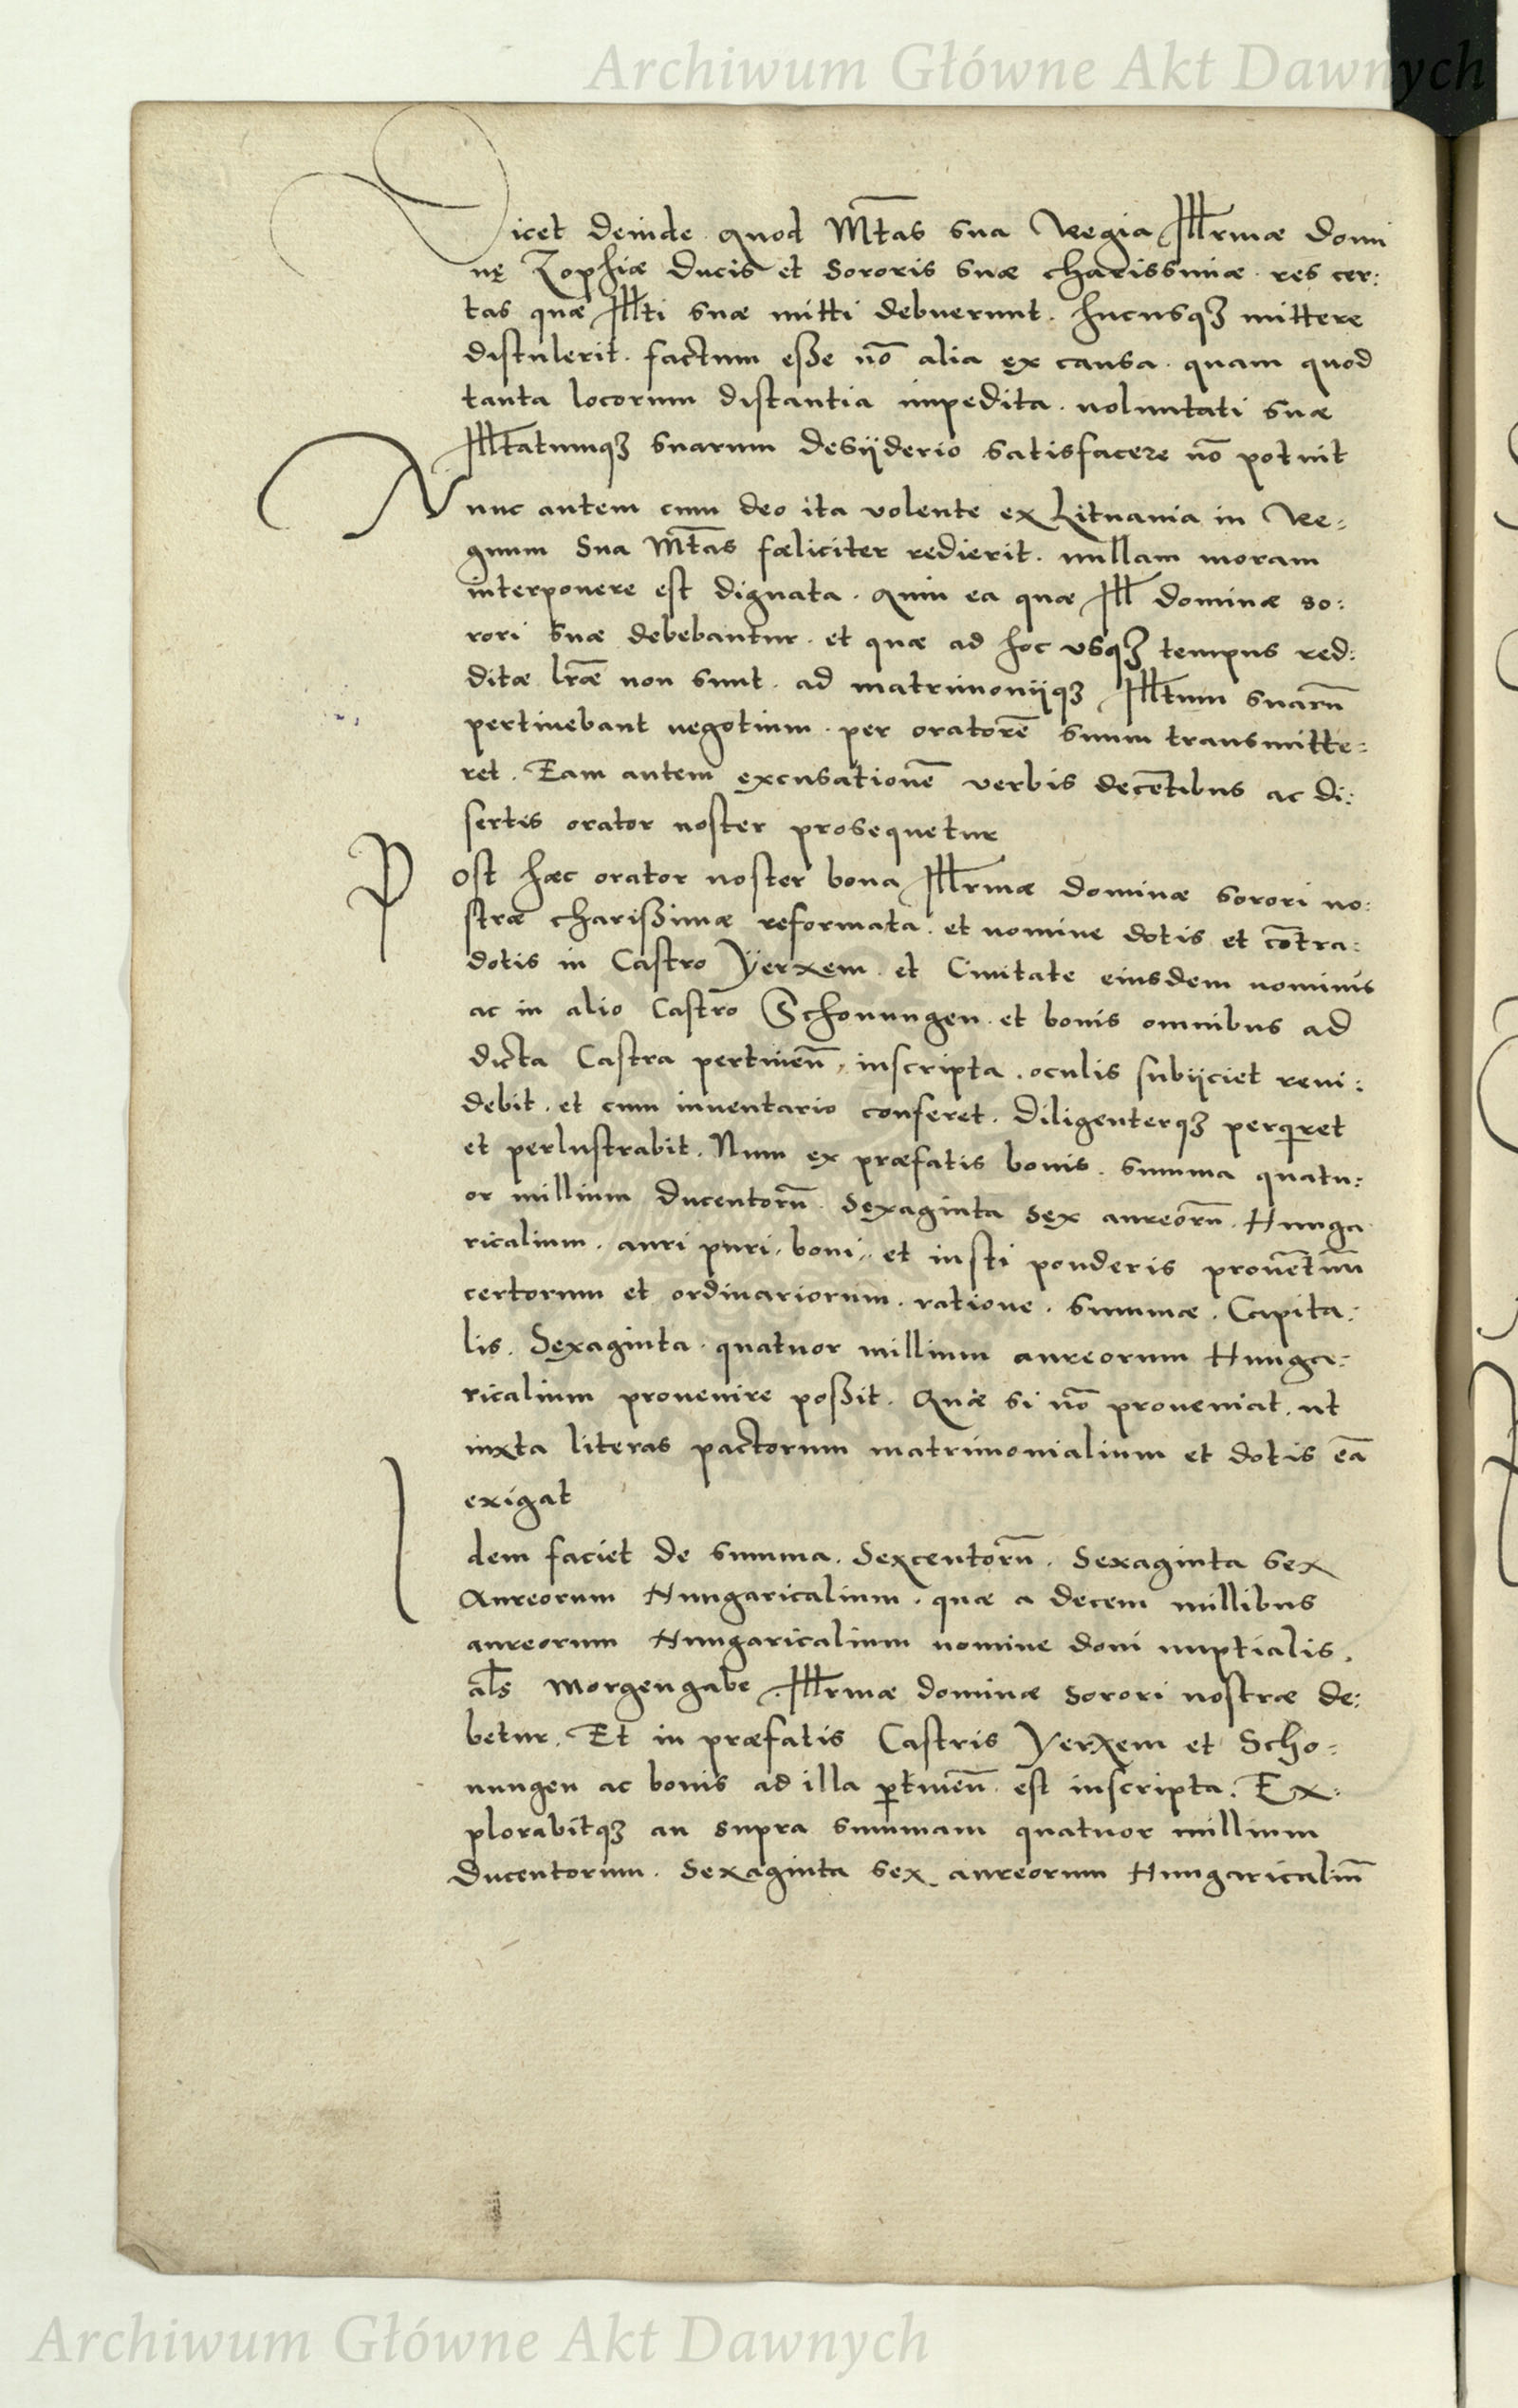 Archiwum Główne Akt Dawnych
Dicet deinde quod Mt̄as sua Regia Illrmæ domi
nę Zophiæ ducis et sororis suæ charissimæ. res cer:
tas quæ Illti suæ mitti debuerunt. hucusqꝫ mittere
distulerit. factum eße nō alia ex causa. quam quod
tanta locorum distantia impedita. voluntati suæ
Illtatumqꝫ suarum desÿderio satisfacere nō potuit
Nunc autem cum deo ita volente ex Lituania in Re:
gnum Sua Mt̄as fœliciter redierit. nullam moram
interponere est dignata. Quin ea quæ Ill dominæ so:
rori suæ debebantur. et quæ ad hoc usqꝫ tempus red:
ditæ lr̄æ non sunt. ad matrimonÿqꝫ Illtum suarū
pertinebant negotium. per oratorē suum transmitte:
ret. Eam autem excusationē verbis decētibus ac di:
sertis orator noster prosequetur
Post hæc orator noster bona Illrmæ dominæ sorori no:
stræ charißimæ reformata. et nomine dotis et cōtra:
dotis in Castro Yerxem. et Ciuitate eiusdem nominis
ac in alio Castro Schonungen. et bonis omnibus ad
dicta Castra pertineñ, inscripta. oculis subÿciet reui:
debit. et cum inuentario conferet. Diligenterqꝫ perqiret
et perlustrabit. Num ex præfatis bonis. summa quatu:
or millium ducentorū. Sexaginta sex aureorū. Hunga
ricalium. auri puri. boni. et iusti ponderis prouētuū
certorum et ordinariorum. ratione. summæ. Capita:
lis. Sexaginta. quatuor millium aureorum Hunga:
ricalium prouenire poßit. Quæ si nō proueniat. ut
iuxta literas pactorum matrimonialium et dotis eā
exigat
Idem faciet de summa. Sexcentorū. Sexaginta sex
Aureorum Hungaricalium. quæ a decem millibus
aureorum Hungaricalium nomine doni nuptialis.
als Morgengabe. Illrmæ dominæ sorori nostræ de:
betur. Et in præfatis Castris Yerxem et Scho:
nungen ac bonis ad illa ꝑtineñ. est inscripta. Ex:
plorabitqꝫ an supra summam quatuor millium
Ducentorum. Sexaginta sex aureorum Hungaricaliū
Archiwum Główne Akt Dawnych